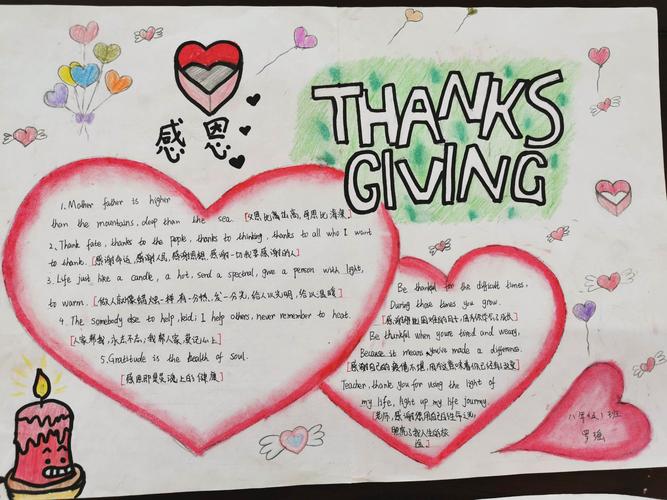 感恩
THANKS
GIVING
1. Mother father is higher
than the mountains, deep than the sea. [父恩比高山高,母恩比海深]
2. Thank fate, thanks to the pople, thanks to thinking, thanks to all who I want
to thank. [感谢命运,感谢人民,感谢思想,感谢一切我要感谢的人]
3. Life just like a candle, a hot, send a spectral, give a person with light,
to warm. [做人应像蜡烛一样 有一分热,发一分光,给人以光明,给以温暖]
4. The somebody else to help, kid; I help others, never remember to heat.
[人家帮我,永志不忘;我帮人家,莫记心上]
5. Gratitude is the health of soul.
[感恩即是灵魂上的健康]
Be thankful for the difficult times,
During those times you grow.
Be thankful when youre tired and weary,
Because it means youve made a difference.
Teacher, thank you for using the light of
my life, light up my life journey.
[老师,感谢您用自己的生命之光
照亮了我人生的旅
途]
八年级1班
罗瑶